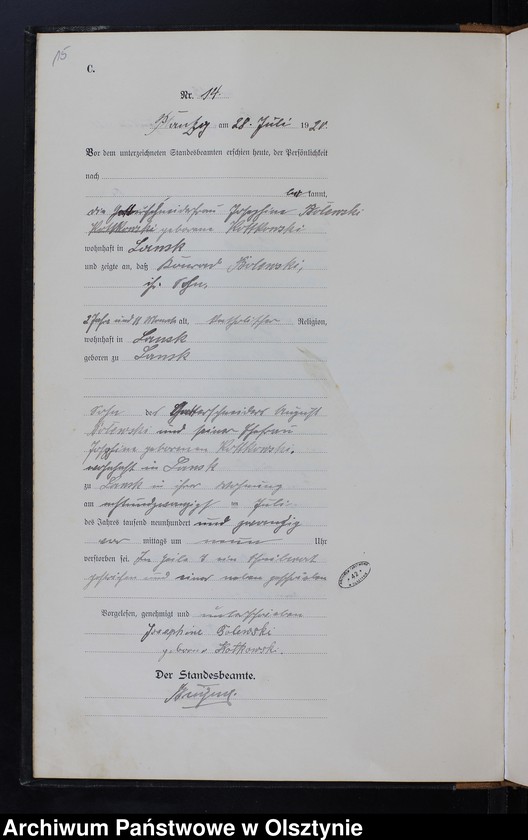 15
C.
Nr. 14.
am 28. Juli 1920.
Vor dem unterzeichneten Standesbeamten erschien heute, der Persönlichkeit
nach
bekannt,
die Gatterschneiderfrau Josephine Bolewski
Kottkowski geborene Kottkowski
wohnhaft in Lansk
und zeigte an, daß Konrad Bolewski,
ihr Sohn,
2 Jahre und 11 Monate alt, katholischer Religion,
wohnhaft in Lansk
geboren zu Lansk
Sohn des Gatterschneiders August
Bolewski und seiner Ehefrau
Josephine geborenen Kottkowski,
wohnhaft in Lansk
zu Lansk in ihrer Wohnung
am achtundzwanzigsten Juli
des Jahres tausend neunhundert und zwanzig
vor mittags um neun Uhr
verstorben sei. In Zeile ein
gestrichen und einer neben geschrieben
Vorgelesen, genehmigt und unterschrieben
Josephine Bolewski
geborene Kotkowski.
Der Standesbeamte.
42
Archiwum Państwowe w Olsztynie